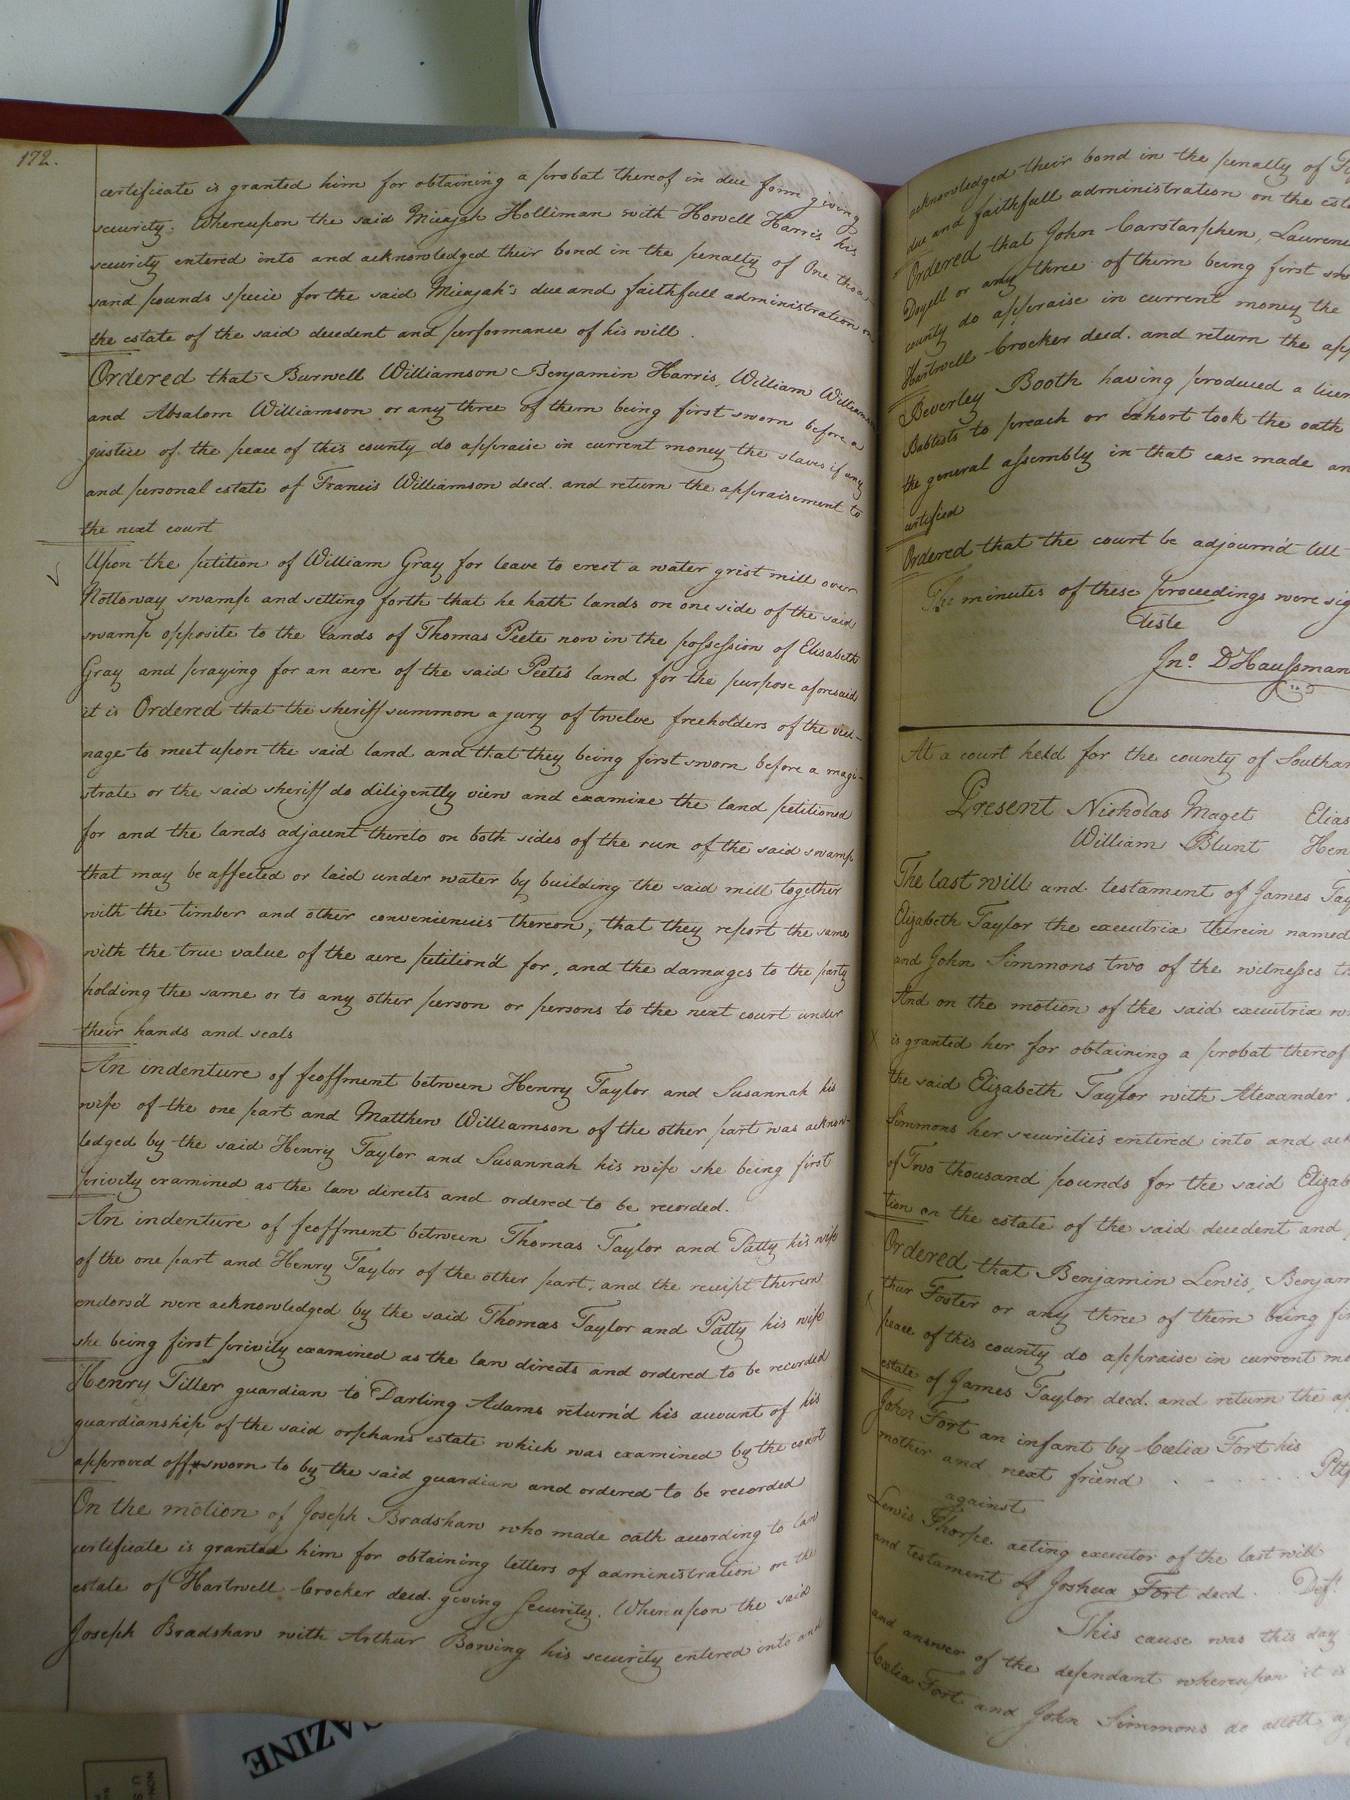 172.
certificate is granted him for obtaining a probat thereof in due form giving
security. Whereupon the said Micajah Holliman with Howell Harris his
security entered into and acknowledged their bond in the penalty of One thou-
sand pounds specie for the said Micajah's due and faithfull administration on
the estate of the said decedent and performance of his will.
Ordered that Burwell Williamson Benjamin Harris, William Williamson
and Absalom Williamson or any three of them being first sworn before a
justice of the peace of this county do appraise in current money the slaves if any
and personal estate of Francis Williamson decd. and return the appraisement to
the next court
Upon the petition of William Gray for leave to erect a water grist mill over
Nottoway swamp and setting forth that he hath lands on one side of the said
swamp opposite to the lands of Thomas Peete now in the possession of Elisabeth
Gray and praying for an acre of the said Peete's land for the purpose aforesaid
it is Ordered that the sheriff summon a jury of twelve freeholders of the vici-
nage to meet upon the said land and that they being first sworn before a magi-
strate or the said sheriff do diligently view and examine the land petitioned
for and the lands adjacent thereto on both sides of the run of the said swamp
that may be affected or laid under water by building the said mill together
with the timber and other conveniencies thereon, that they report the same
with the true value of the acre petition'd for, and the damages to the party
holding the same or to any other person or persons to the next court under
their hands and seals
An indenture of feoffment between Henry Taylor and Susannah his
wife of the one part and Matthew Williamson of the other part was acknow-
ledged by the said Henry Taylor and Susannah his wife she being first
privily examined as the law directs and ordered to be recorded.
An indenture of feoffment between Thomas Taylor and Patty his wife
of the one part and Henry Taylor of the other part, and the receipt thereon
endors'd were acknowledged by the said Thomas Taylor and Patty his wife
she being first privily examined as the law directs and ordered to be recorded
Henry Tiller guardian to Darling Adams return'd his account of his
guardianship of the said orphans estate which was examined by the court
approved off sworn to by the said guardian and ordered to be recorded
On the motion of Joseph Bradshaw who made oath according to law
certificate is granted him for obtaining letters of administration on the
estate of Hartwell Crocker decd. giving security. Whereupon the said
Joseph Bradshaw with Arthur Bowing his security entered into and
acknowledged their bond in the penalty of
due and faithfull administration on the
Ordered that John Carstarphen,
Doyell or any three of them being first
county do appraise in current money the
Hartwell Crocker decd. and return the
Beverley Booth having produced a
Babtists to preach or exhort took the oath
the general assembly in that case made
certified
Ordered that the court be adjourn'd till
The minutes of these proceedings were
Teste
Jno. D Haussman
At a court held for the county of
Present Nicholas Maget Elias
William Blunt
The last will and testament of James
Elizabeth Taylor the executrix therein named
and John Simmons two of the witnesses
And on the motion of the said executrix
is granted her for obtaining a probat thereof
the said Elizabeth Taylor with Alexander
Simmons her securities entered into and
of Two thousand pounds for the said
tion on the estate of the said decedent and
Ordered that Benjamin Lewis,
thur Foster or any three of them being
peace of this county do appraise in current
estate of James Taylor decd. and return the
John Fort an infant by Coelia Fort his
mother and next friend . . . . . .
against
Lewis Thorpe acting executor of the last will
and testament of Joshua Fort decd. . . Deft.
This cause was this day
and answer of the defendant whereupon it is
Coelia Fort and John Simmons do allott